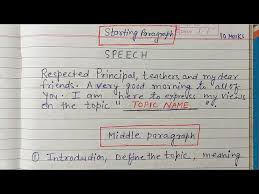 Starting Paragraph
10 Marks
SPEECH
Respected Principal, teachers and my dear
friends. A very good morning to all of
you. I am here to express my views
on the topic " TOPIC NAME ".
Middle paragraph
① Introduction, Define the topic, meaning